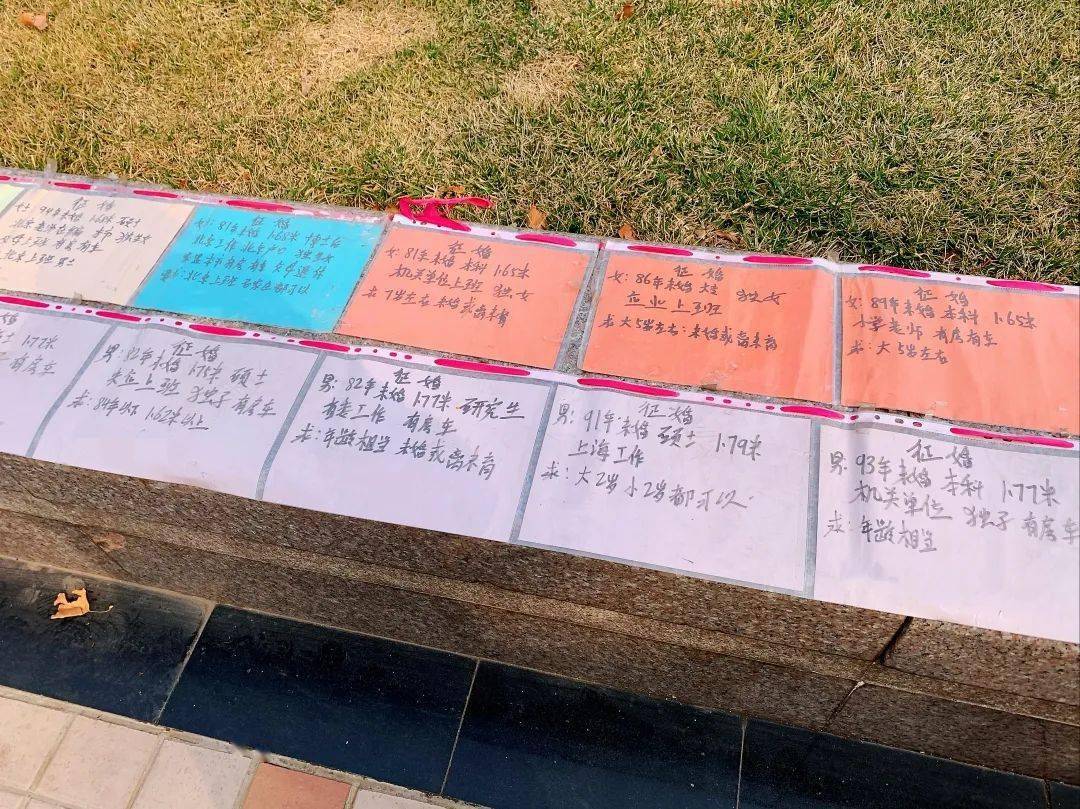 征婚
女：94年未婚 1.68米 硕士
女：81年未婚 1.68米 博士后
北京工作 北京户口 独生女
征婚
女：81年未婚 本科 1.65米
机关单位上班 独女
求 7岁左右 未婚或离未育
征婚
女：86年未婚 大专 独女
企业上班
求：大5岁左右：未婚或离未育
征婚
女：89年未婚 本科 1.65米
小学老师 有房有车
求：大5岁左右
婚
士 1.77米
有房车
征婚
男：82年未婚 1.75米 硕士
央企上班 独子 有房车
求：84年以下 1.62米以上
征婚
男：82年未婚 1.77米 研究生
有套工作 有房车
求：年龄相当 未婚或离未育
征婚
男：91年未婚 硕士 1.79米
上海工作
求：大2岁 小2岁都可以
征婚
男：93年未婚 本科 1.77米
机关单位 独子 有房车
求：年龄相当